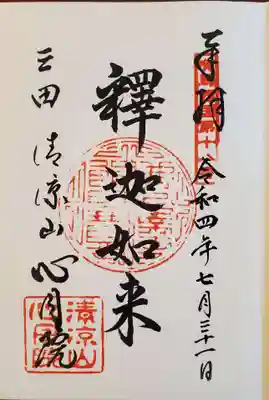 奉拝
令和四年七月三十一日
釋迦如来
三田 清凉山 心月院
清凉山
心月院